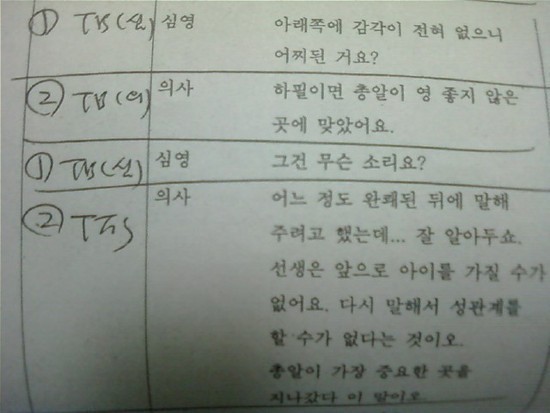 ① TB(심) 심영 아래쪽에 감각이 전혀 없으니
어찌된 거요?
② TB(의) 의사 하필이면 총알이 영 좋지 않은
곳에 맞았어요.
① TB(심) 심영 그건 무슨 소리요?
② 의사 어느 정도 완쾌된 뒤에 말해
주려고 했는데... 잘 알아두쇼.
선생은 앞으로 아이를 가질 수가
없어요. 다시 말해서 성관계를
할 수가 없다는 것이오.
총알이 가장 중요한 곳을
지나갔다 이 말이오.